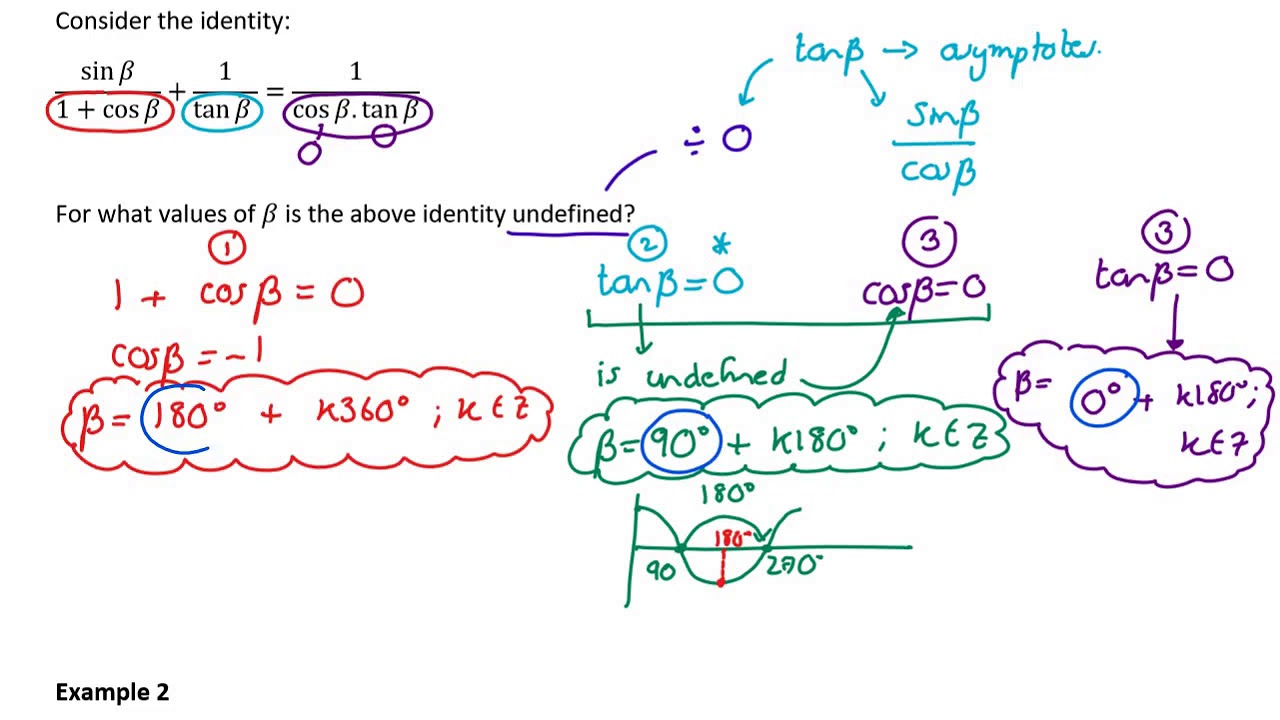 Consider the identity:
sin β / 1 + cos β + 1 / tan β = 1 / cos β . tan β
0 0
tanβ → asymptotes.
÷ 0
sinβ / cosβ
For what values of β is the above identity undefined?
①
1 + cosβ = 0
cosβ = -1
β = 180° + k360° ; k ∈ Z
② *
tanβ = 0
is undefined
③
cosβ = 0
β = 90° + k180° ; k ∈ Z
180°
180°
90 270°
③
tanβ = 0
β = 0° + k180° ;
k ∈ Z
Example 2